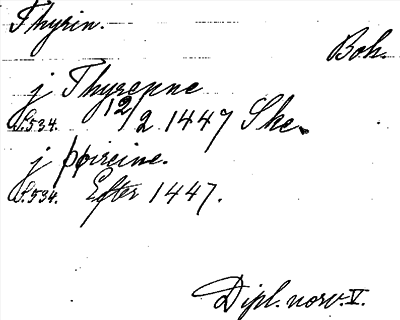 Thyrin.
Boh.
j Thyrenne
S.534. 12/2 1447 Ske.
j þireine.
S.534. Efter 1447.
Dipl. norv. V.